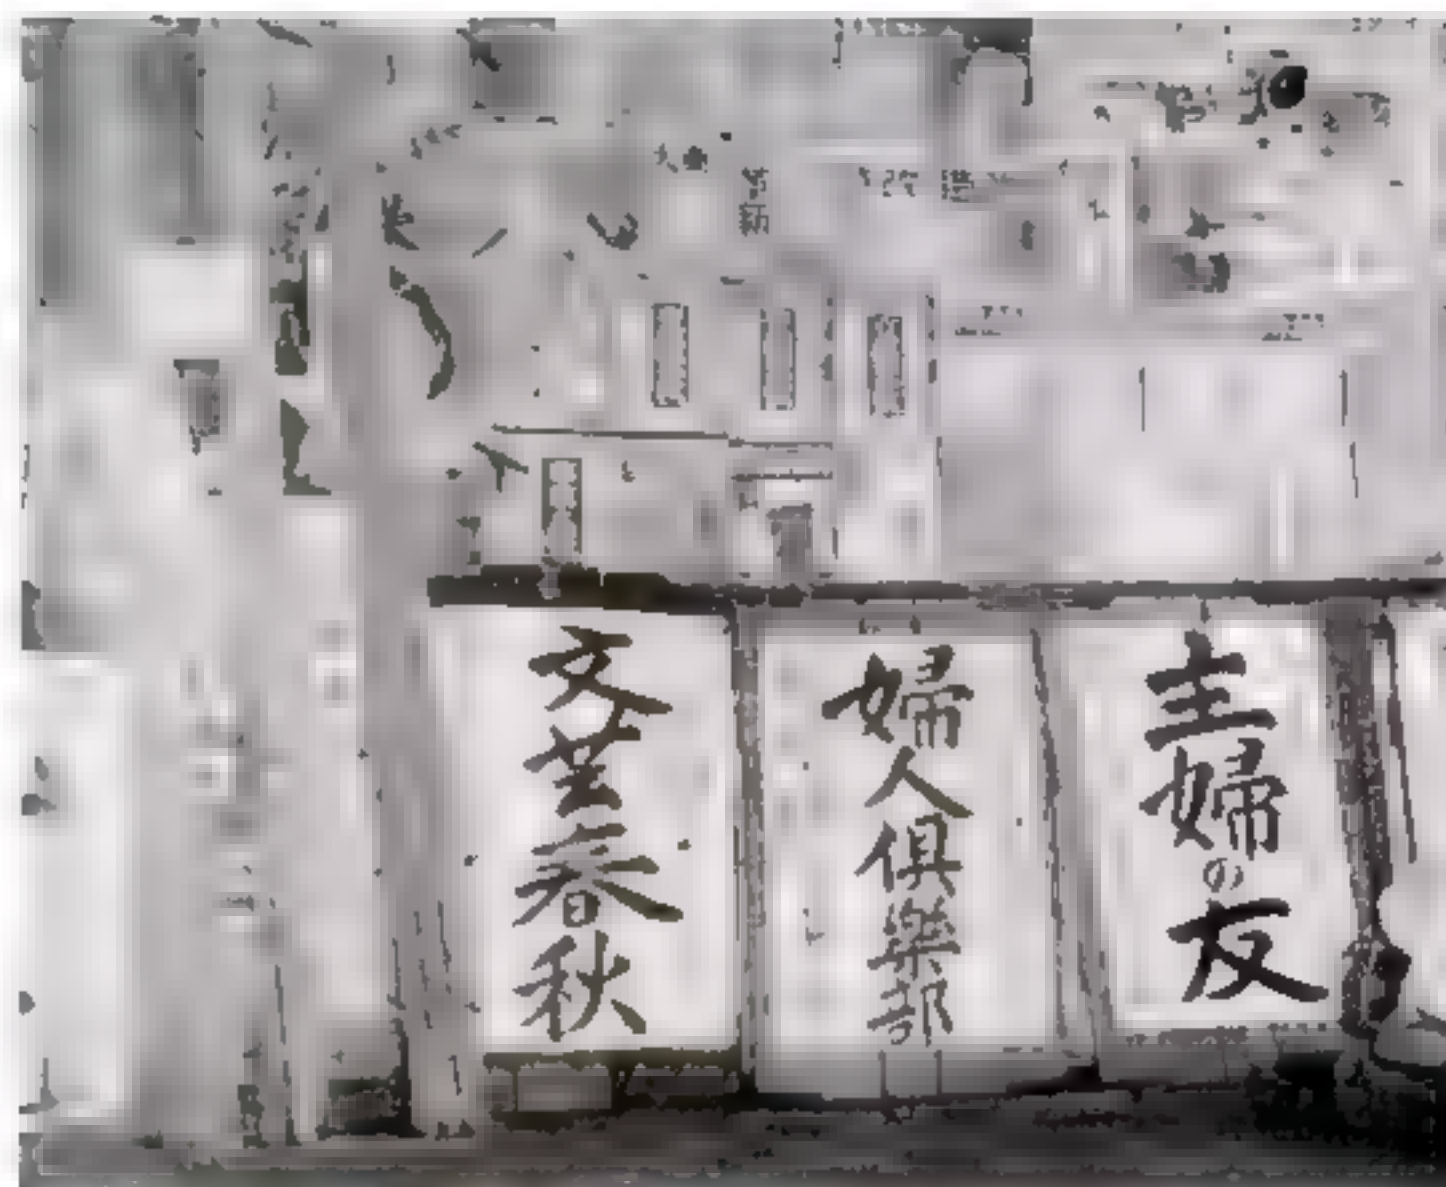 主婦の友
婦人俱樂部
文芸春秋